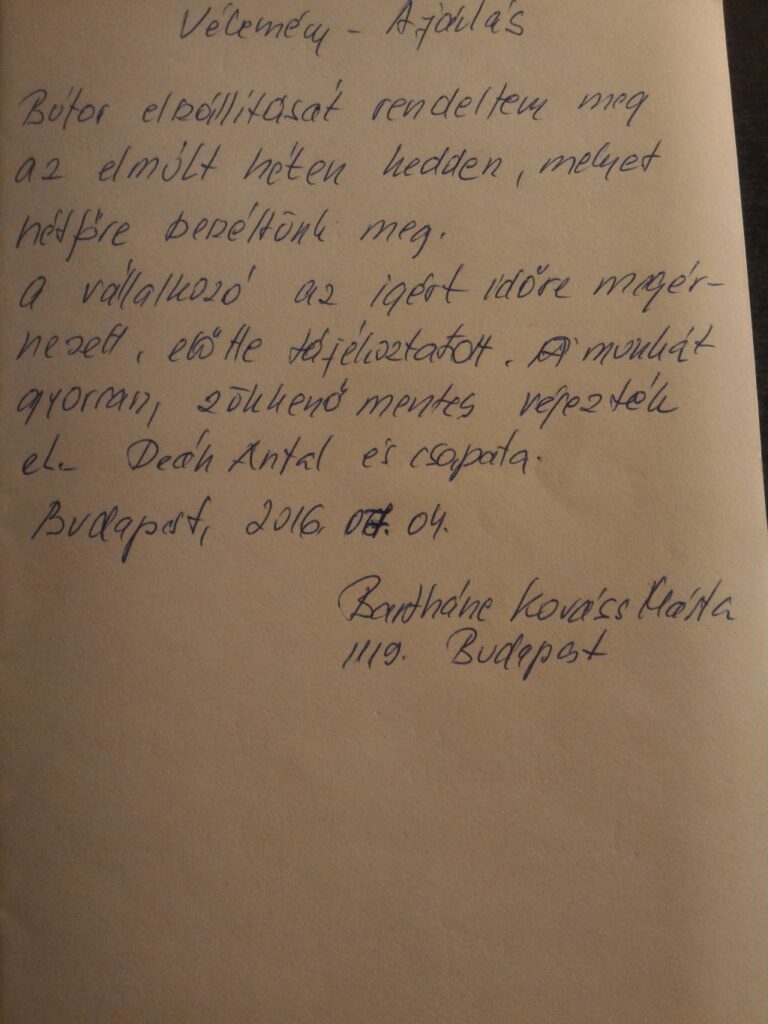 Vélemény - Ajánlás
Bútor elszállítását rendeltem meg
az elmúlt héten kedden, melyet
hétfőre beszéltünk meg.
A vállalkozó az igért időre megér-
kezett, előtte tájékoztatott. A munkát
gyorsan, zökkenő mentes végezték
el. Deák Antal és csapata.
Budapest, 2016. 04.
Kovács Márta
1119. Budapest